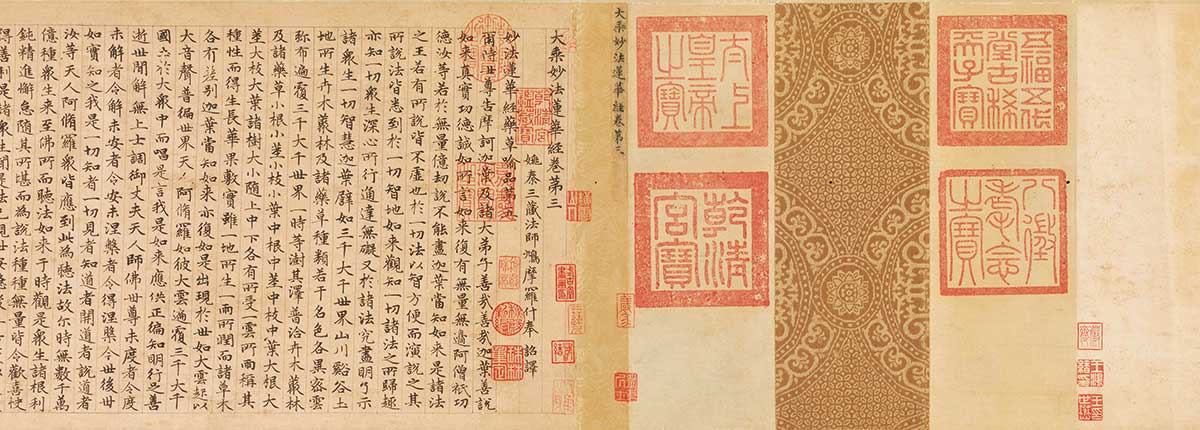 五福五代堂古稀天子寶
八徵耄念之寶
太上皇帝之寶
乾清宮寶
大乘妙法蓮華經卷第三
大乘妙法蓮華經卷第三
姚秦三藏法師鳩摩羅什奉 詔譯
妙法蓮華經藥草喻品第五
爾時世尊告摩訶迦葉及諸大弟子善哉善哉迦葉善說
如來真實功德誠如所言如來復有無量無邊阿僧祇功
德汝等若於無量億劫說不能盡迦葉當知如來是諸法
之王若有所說皆不虛也於一切法以智方便而演說之其
所說法皆悉到於一切智地如來觀知一切諸法之所歸趣
亦知一切衆生深心所行通達無礙又於諸法究盡明了示
諸衆生一切智慧迦葉譬如三千大千世界山川谿谷土
地所生卉木叢林及諸藥草種類若干名色各異密雲
弥布遍覆三千大千世界一時等澍其澤普洽卉木叢林
及諸藥草小根小莖小枝小葉中根中莖中枝中葉大根大
莖大枝大葉諸樹大小隨上中下各有所受一雲所雨稱其
種性而得生長華果敷實雖一地所生一雨所潤而諸草木
各有差別迦葉當知如來亦復如是出現於世如大雲起以
大音聲普徧世界天人阿脩羅如彼大雲遍覆三千大千
國土於大衆中而唱是言我是如來應供正徧知明行足善
逝世間解無上士調御丈夫天人師佛世尊未度者令度
未解者令解未安者令安未涅槃者令得涅槃今世後世
如實知之我是一切知者一切見者知道者開道者說道者
汝等天人阿脩羅衆皆應到此為聽法故尔時無數千萬
億種衆生來至佛所而聽法如來于時觀是衆生諸根利
鈍精進懈怠隨其所堪而為說法種種無量皆令歡喜快
得善利是諸衆生聞是法已現世安隱後